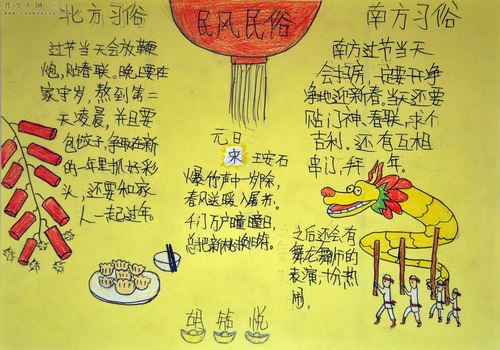 北方习俗
过节当天会放鞭
炮,贴春联。晚上要在
家守岁,熬到第二
天凌晨,并且要
包饺子,争取在新
的一年里抓好彩
头,还要和家
人一起过年。
民风民俗
元日
宋 王安石
爆竹声中一岁除,
春风送暖入屠苏。
千门万户曈曈日,
总把新桃换旧符。
南方习俗
南方过节当天
会扫房,一定要干净
净地迎新春。当天还要
贴门神、春联,求个
吉利。还有互相
串门,拜年。
之后还会有
舞龙舞狮的
表演,十分热
闹。
胡 悦